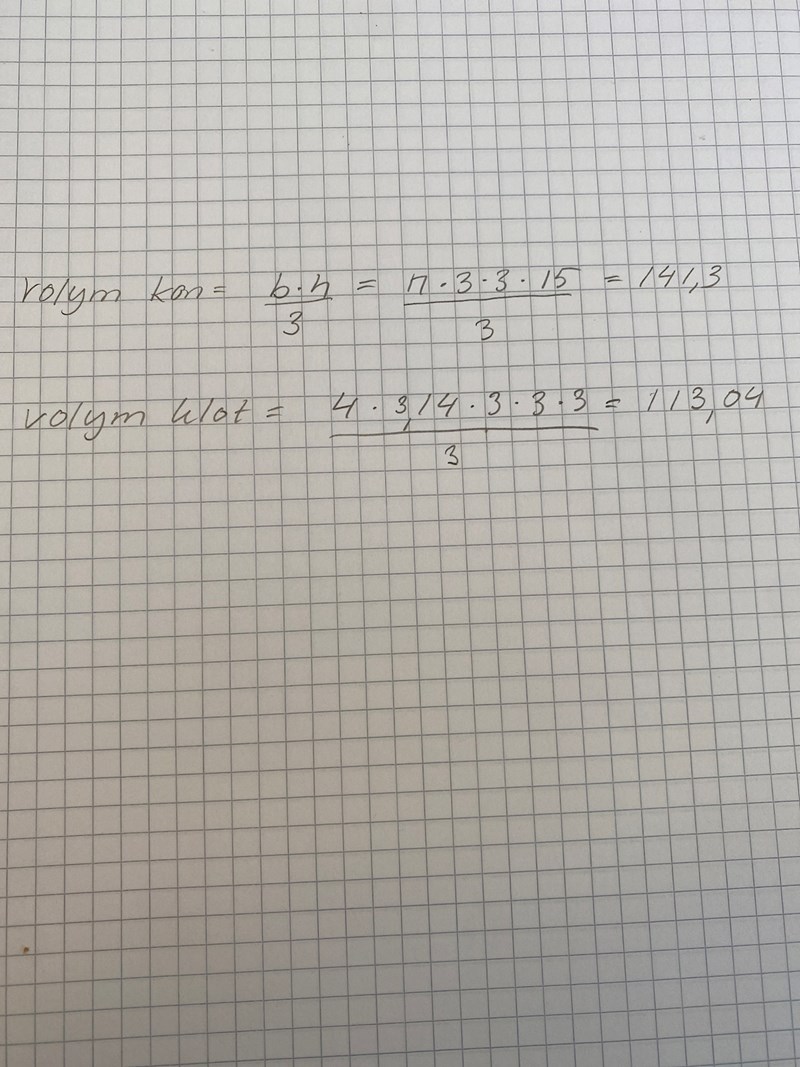 volym kon = b·h/3 = π·3·3·15/3 = 141,3
volym klot = 4·3,14·3·3·3/3 = 113,04